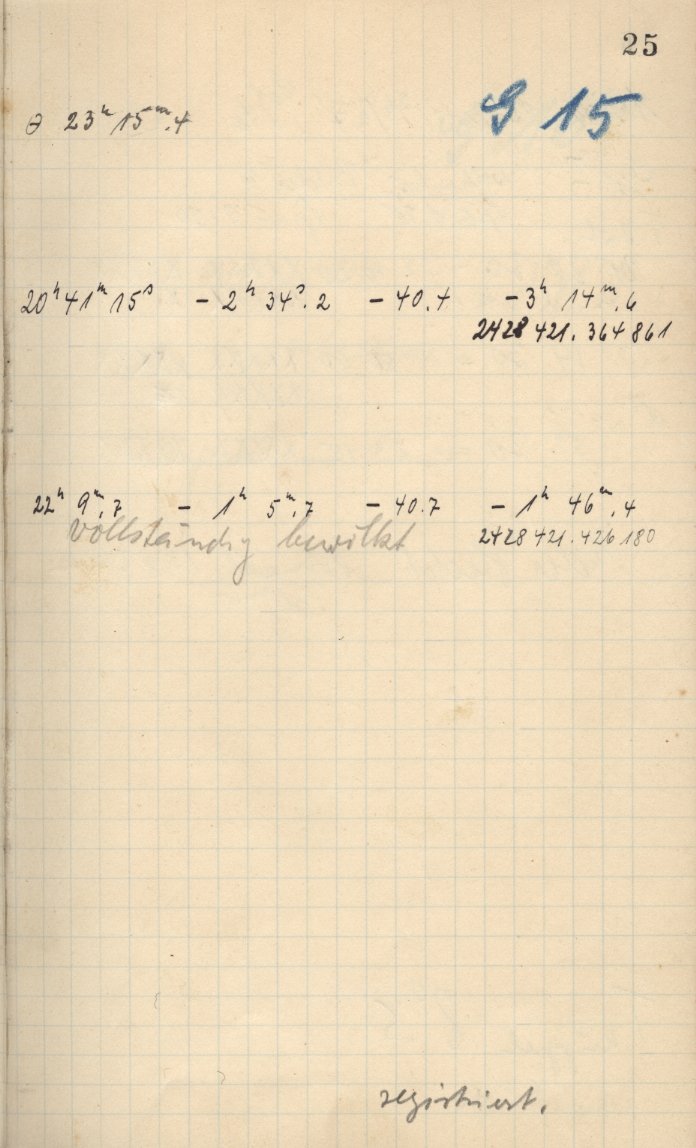 25
G 15
θ 23ʰ 15ᵐ.4
20ʰ 41ᵐ 15ˢ - 2ʰ 34ˢ.2 - 40.4 - 3ʰ 14ᵐ.6
2428 421.364861
22ʰ 9ᵐ.7 - 1ʰ 5ᵐ.7 - 40.7 - 1ʰ 46ᵐ.4
vollständig bewölkt 2428 421.426180
registriert.